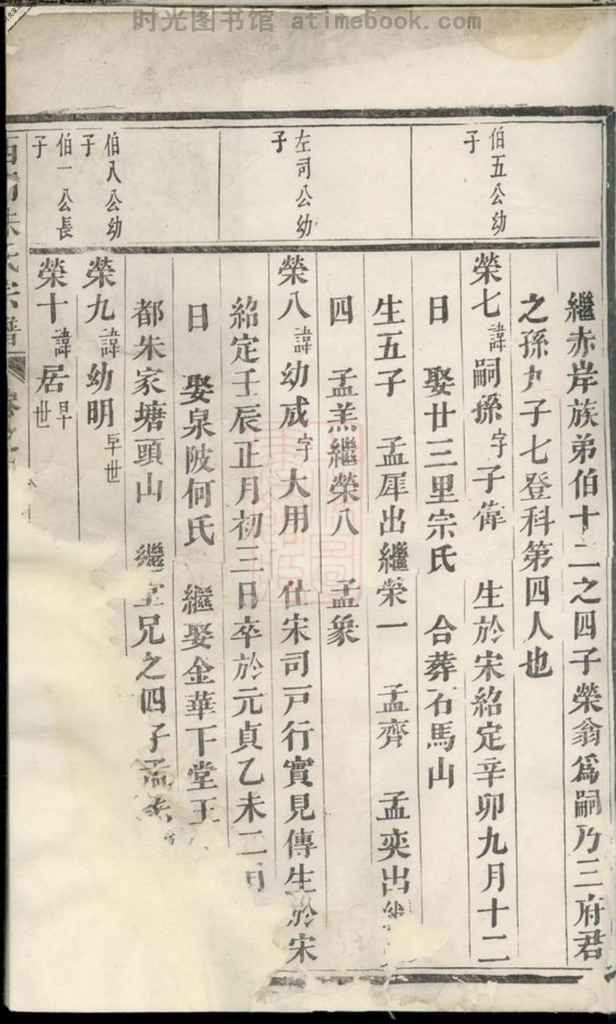 时光图书馆 atimebook.com
伯五公幼
子
左司公幼
子
伯八公幼
子
伯一公長
子
繼赤岸族弟伯十二之四子榮翁爲嗣乃三府君
之孫九子七登科第四人也
榮七 諱嗣孫 字子偉 生於宋紹定辛卯九月十二
日 娶廿三里宗氏 合葬石馬山
生五子 孟犀出繼榮一 孟齊 孟奕出
四 孟羔繼榮八 孟象
榮八 諱幼成 字大用 仕宋司戸行實見傳生於宋
紹定壬辰正月初三日卒於元貞乙未二月
日 娶泉陂何氏 繼娶金華下堂王
都朱家塘頭山 繼堂兄之四子孟
榮九 諱幼明 早世
榮十 諱居 早世
朱氏宗譜